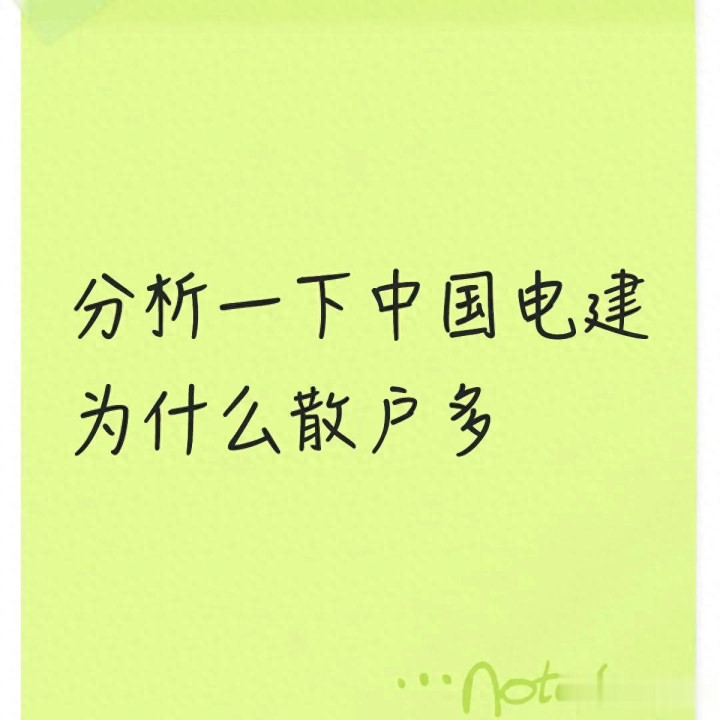 分析一下中国电建
为什么散户多